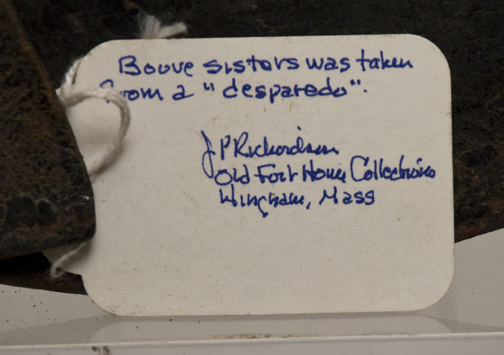 Bouve sistors was taken
from a "desparedo".
J P Richardson
Old Fort House Collections
Hingham, Mass